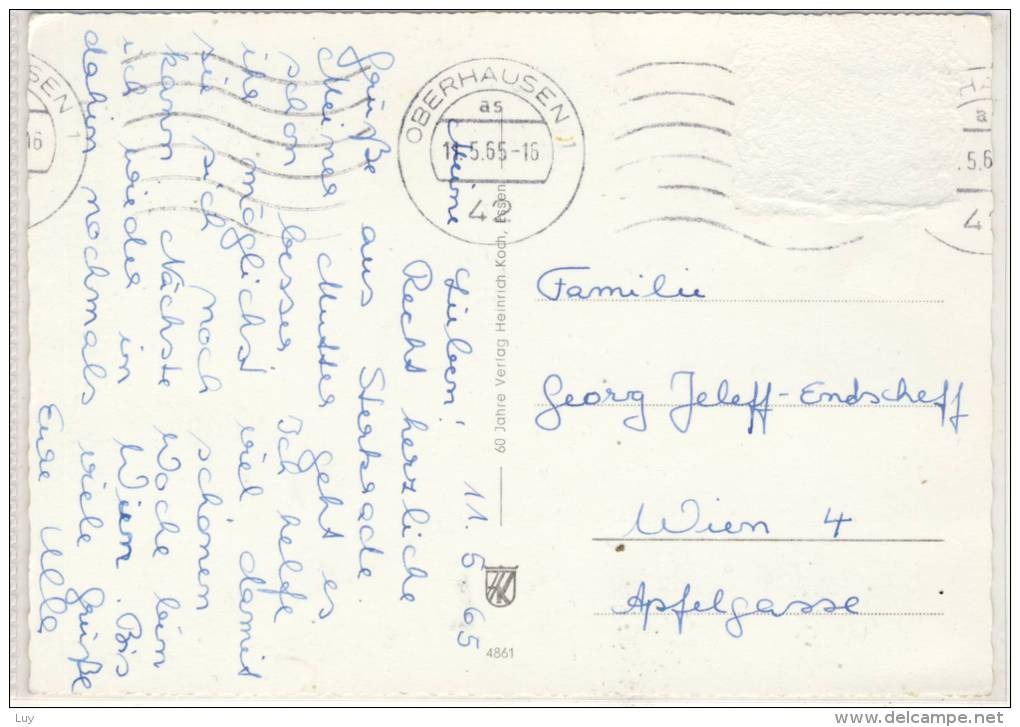 Meine Lieben! 11.5.65
Recht herzliche
Grüße aus Sterkrade.
Meiner Mutter geht es
schon besser. Ich helfe
ihr möglichst viel damit
sie sich noch schonen
kann. Nächste Woche bin
ich wieder in Wien. Bis
dahin nochmals viele Grüße
Eure Ulla
60 Jahre Verlag Heinrich Koch, Essen
4861
OBERHAUSEN 1
as
11.5.65-16
42
Familie
Georg Jeleff-Endscheff
Wien 4
Apfelgasse
SEN 1
16
HA
a
.5.6
42
Luy
delcampe.net